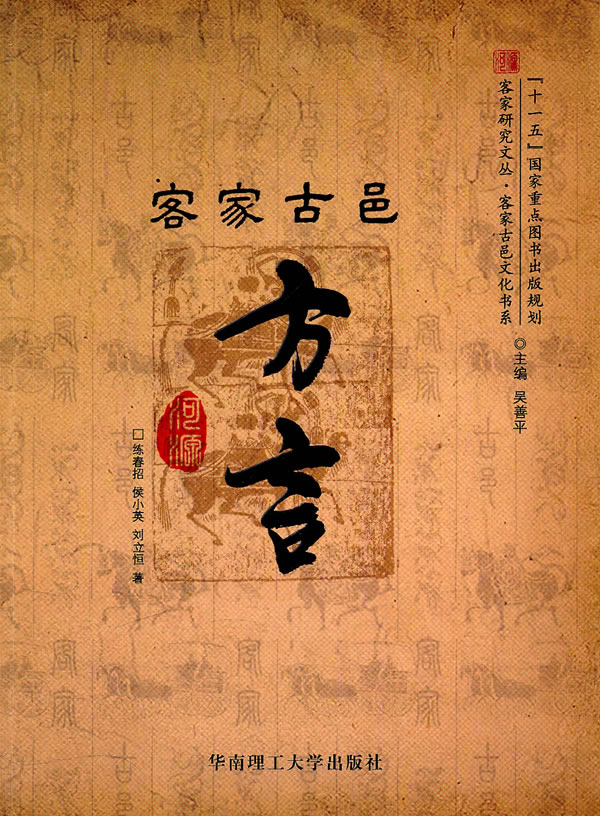 河源
「十一五」国家重点图书出版规划
客家研究文丛·客家古邑文化书系
◎主编 吴善平
客家古邑
方言
河源
□练春招 侯小英 刘立恒 著
华南理工大学出版社